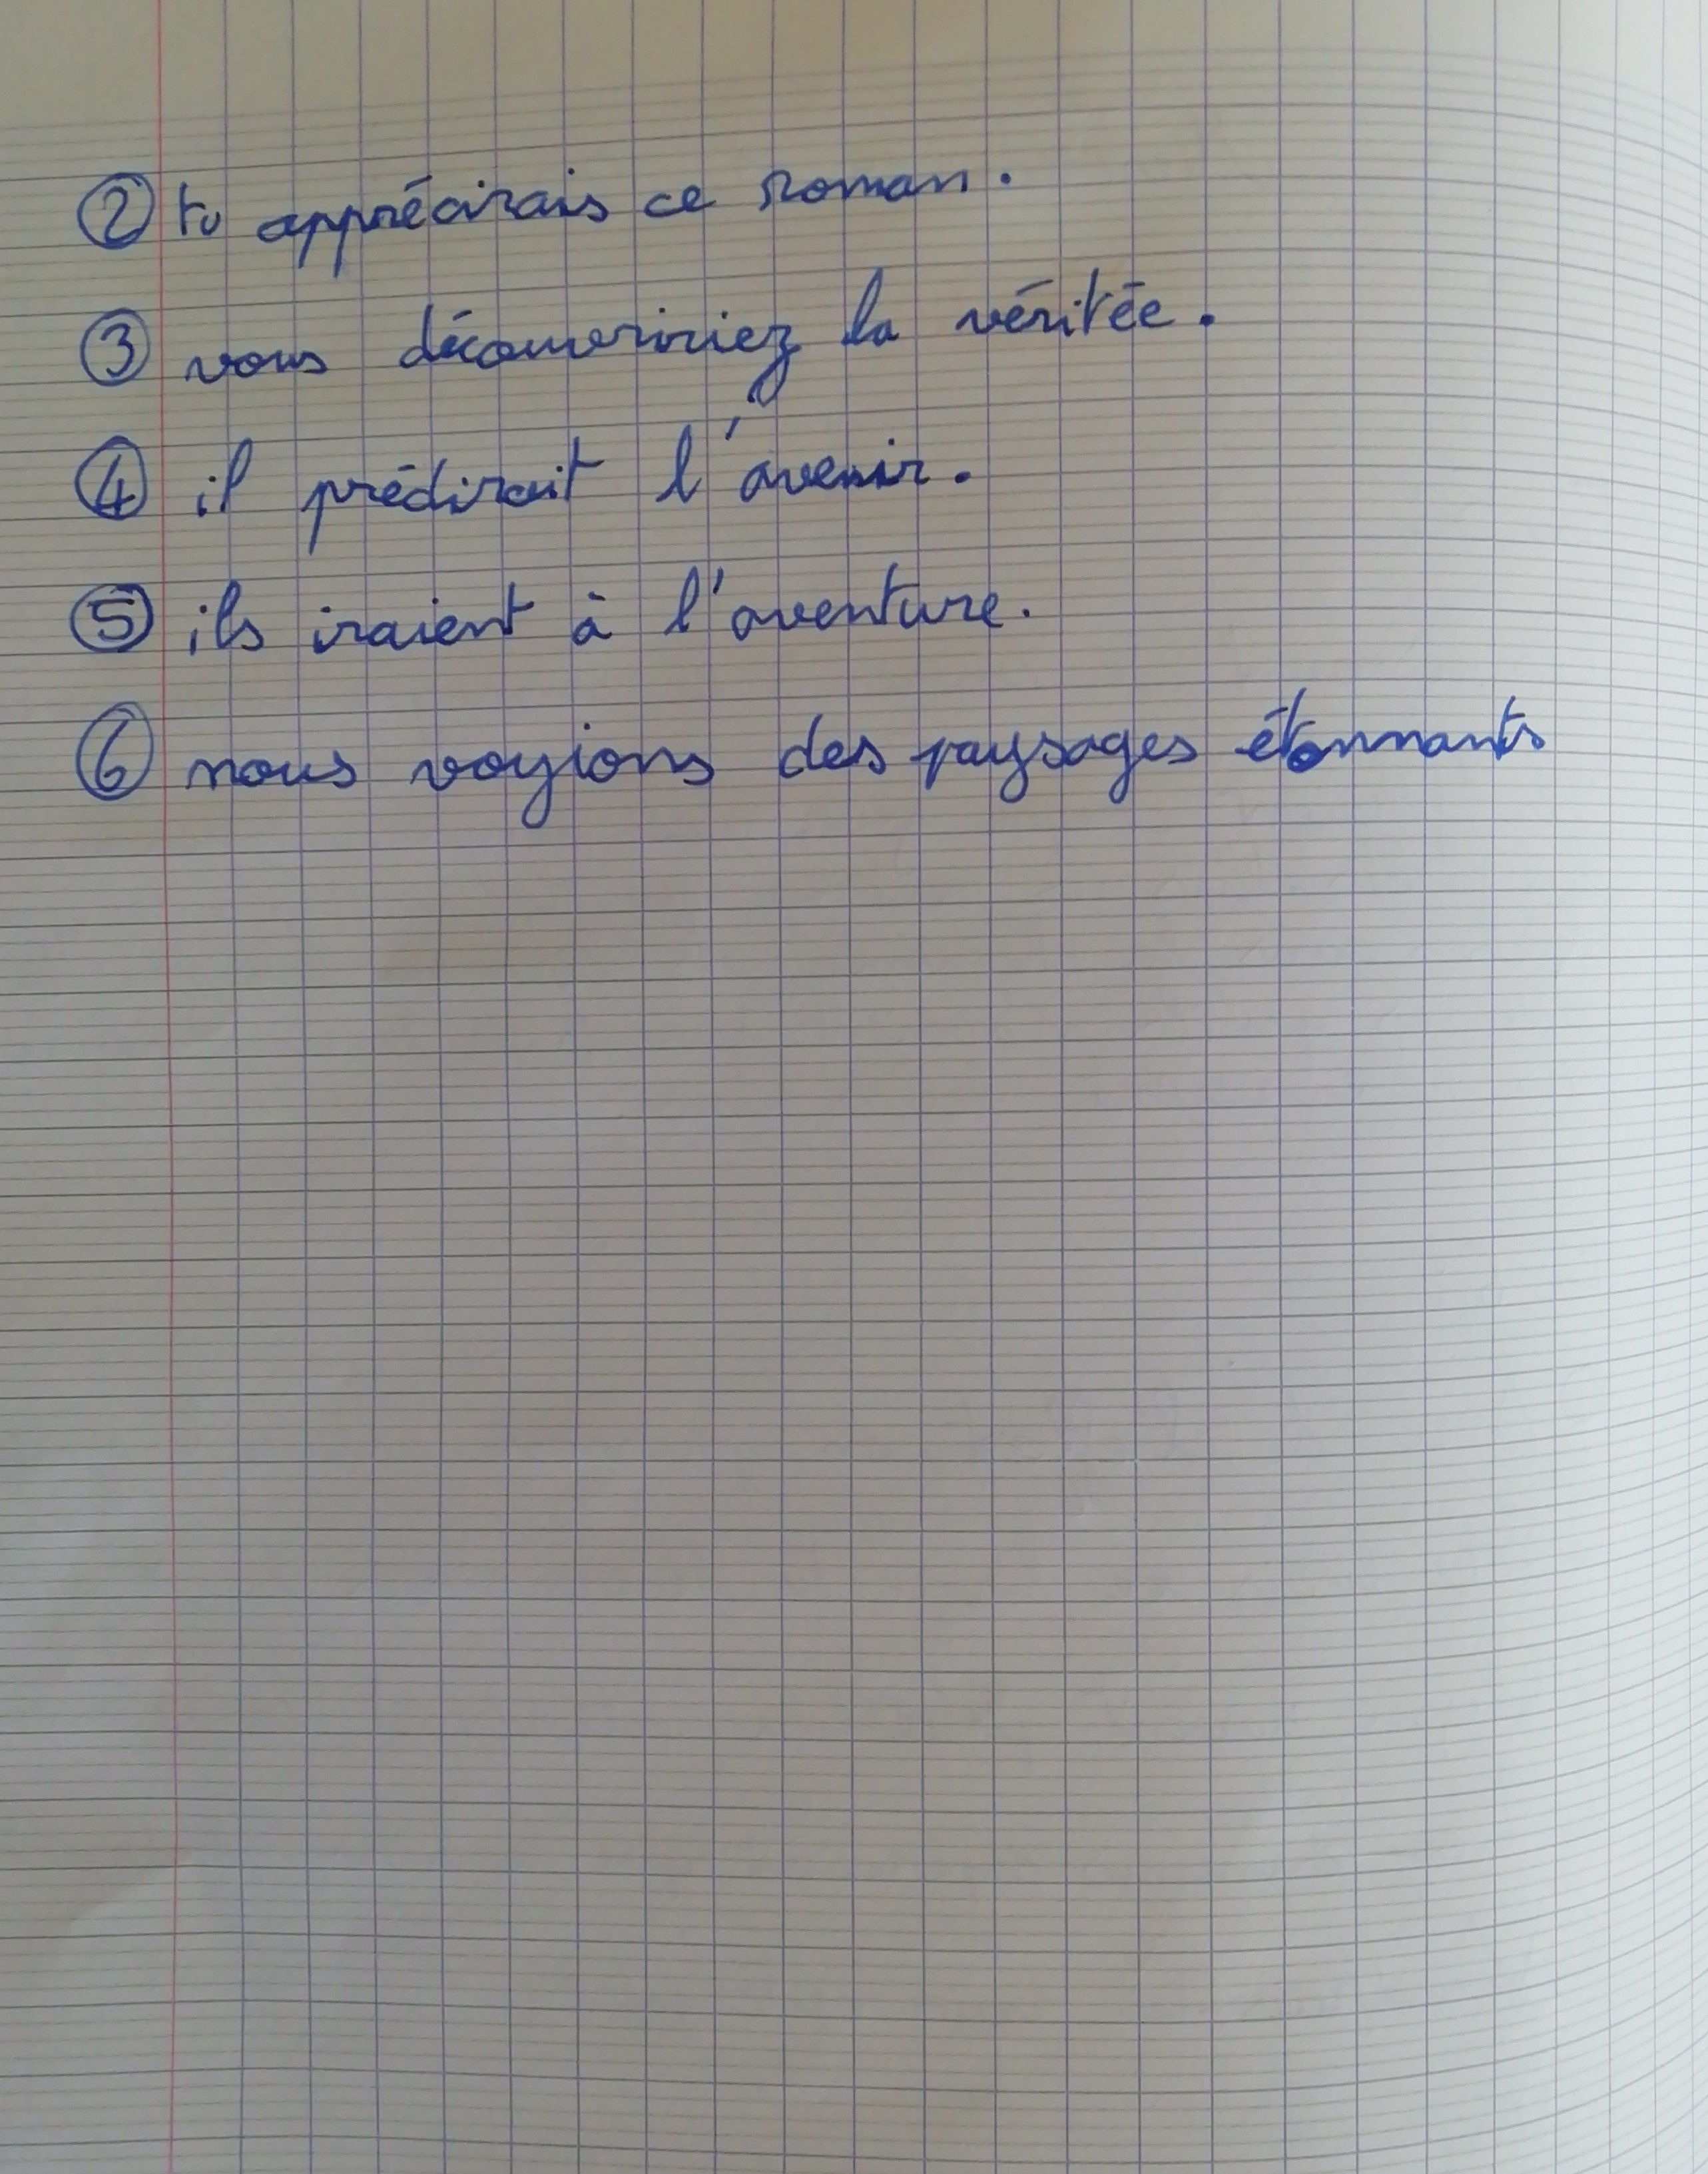 ② tu apprécirais ce roman.
③ vous découveririez la véritée.
④ il prédirait l'avenir.
⑤ ils iraient à l'aventure.
⑥ nous voyions des paysages étonnants